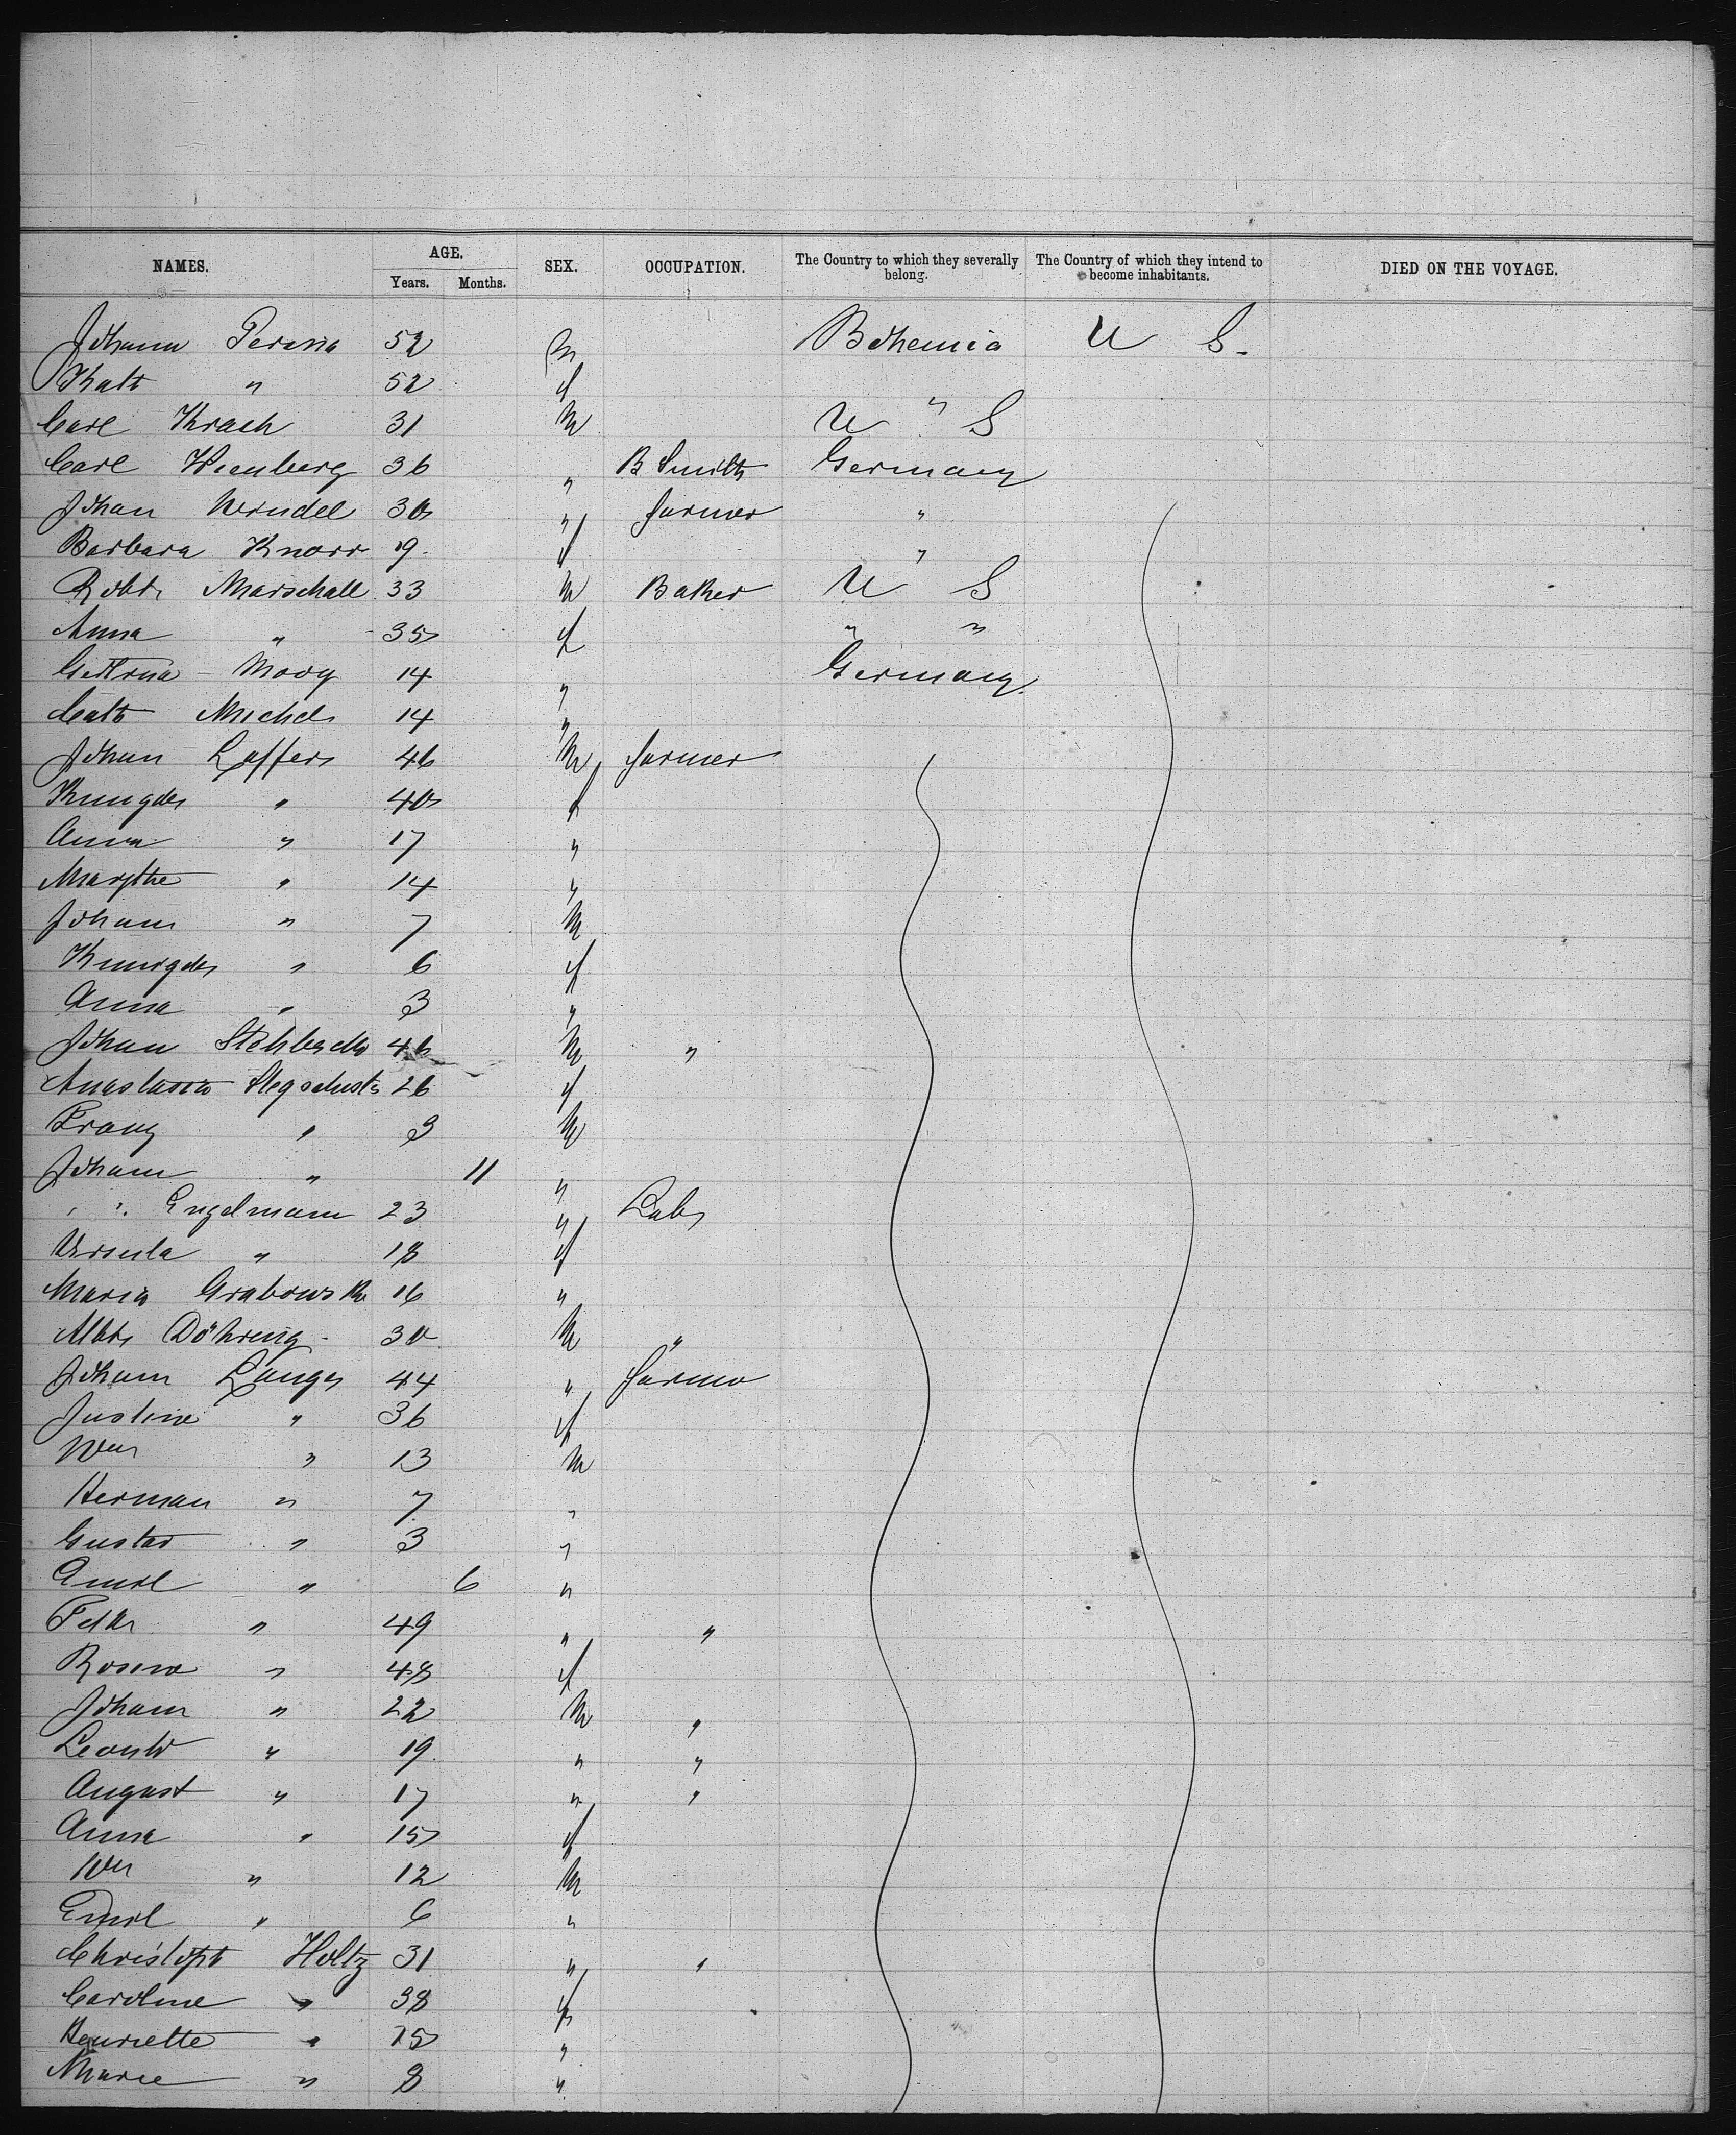 NAMES. AGE. SEX. OCCUPATION. The Country to which they severally belong. The Country of which they intend to become inhabitants. DIED ON THE VOYAGE.
Years. Months.
Johann Perina 52 m Bohemia U S.
Kath " 52 f
Carl Krach 31 M U " S
Carl Wienberg 36 " B Smith Germany
Johan 30 " farmer "
Barbara Knorr 19. f "
Robt Marschall 33 M Baker U S
Anna " 35 f " "
Moog 14 " Germany
Cath Michels 14 "
Johan Laffers 46 M farmer
Kungde " 40 f
Anna " 17 "
Margthe " 14 "
Johann " 7 M
Kunigde " 6 f
Anna " 3 "
Johan 46 M "
Anastasia 26 f
Franz " 3 M
Johann " 11 "
" " Engelmann 23 " Lab
Ursula " 18 f
Maria Grabowsk 16 "
Albt Döhring 30 M "
Johann Lange 44 " farmer
Justine " 36 f
Wm " 13 M
Herman " 7 "
Gustav " 3 "
Emil " 6 "
" 49 " "
Rosina " 48 f
Johann " 22 M "
" 19. " "
August " 17 " "
Anna " 15 f
Wm " 12 M
Emil " 6 "
Christoph Holtz 31 " "
Caroline " 38 f
Henriette " 15 "
Marie " 8 "